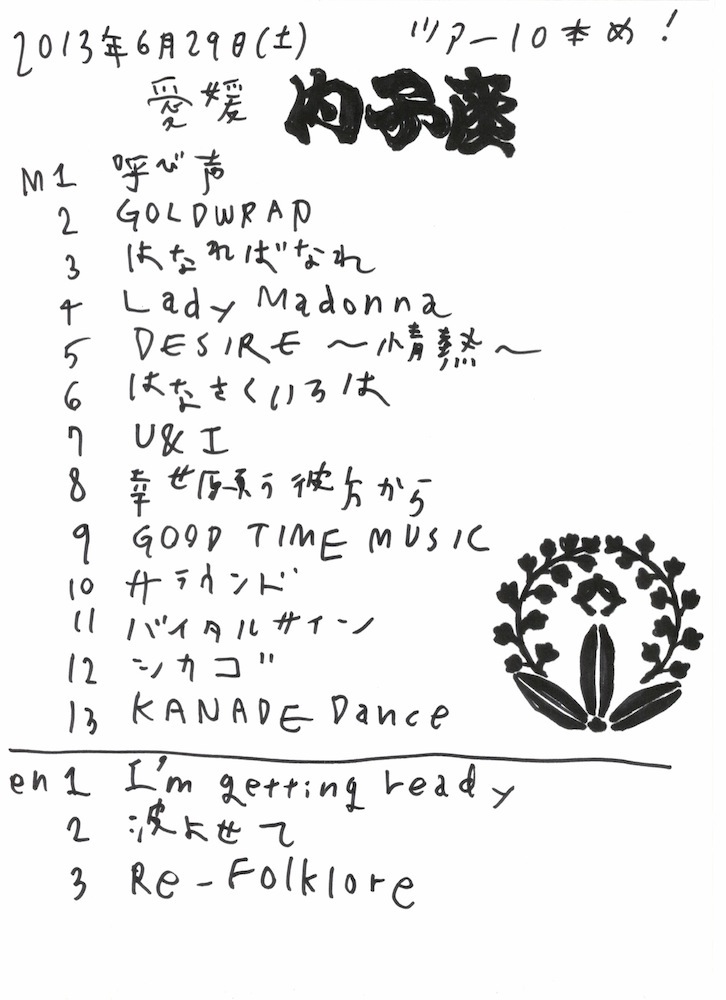 2013年6月29日(土) ツアー10本め!
愛媛 内子座
M1 呼び声
2 GOLDWRAP
3 はなればなれ
4 Lady Madonna
5 DESIRE 〜情熱〜
6 はなさくいろは
7 U&I
8 幸せ願う彼方から
9 GOOD TIME MUSIC
10 サラウンド
11 バイタルサイン
12 シカゴ
13 KANADE Dance
en1 I'm getting ready
2 波よせて
3 Re-Folklore